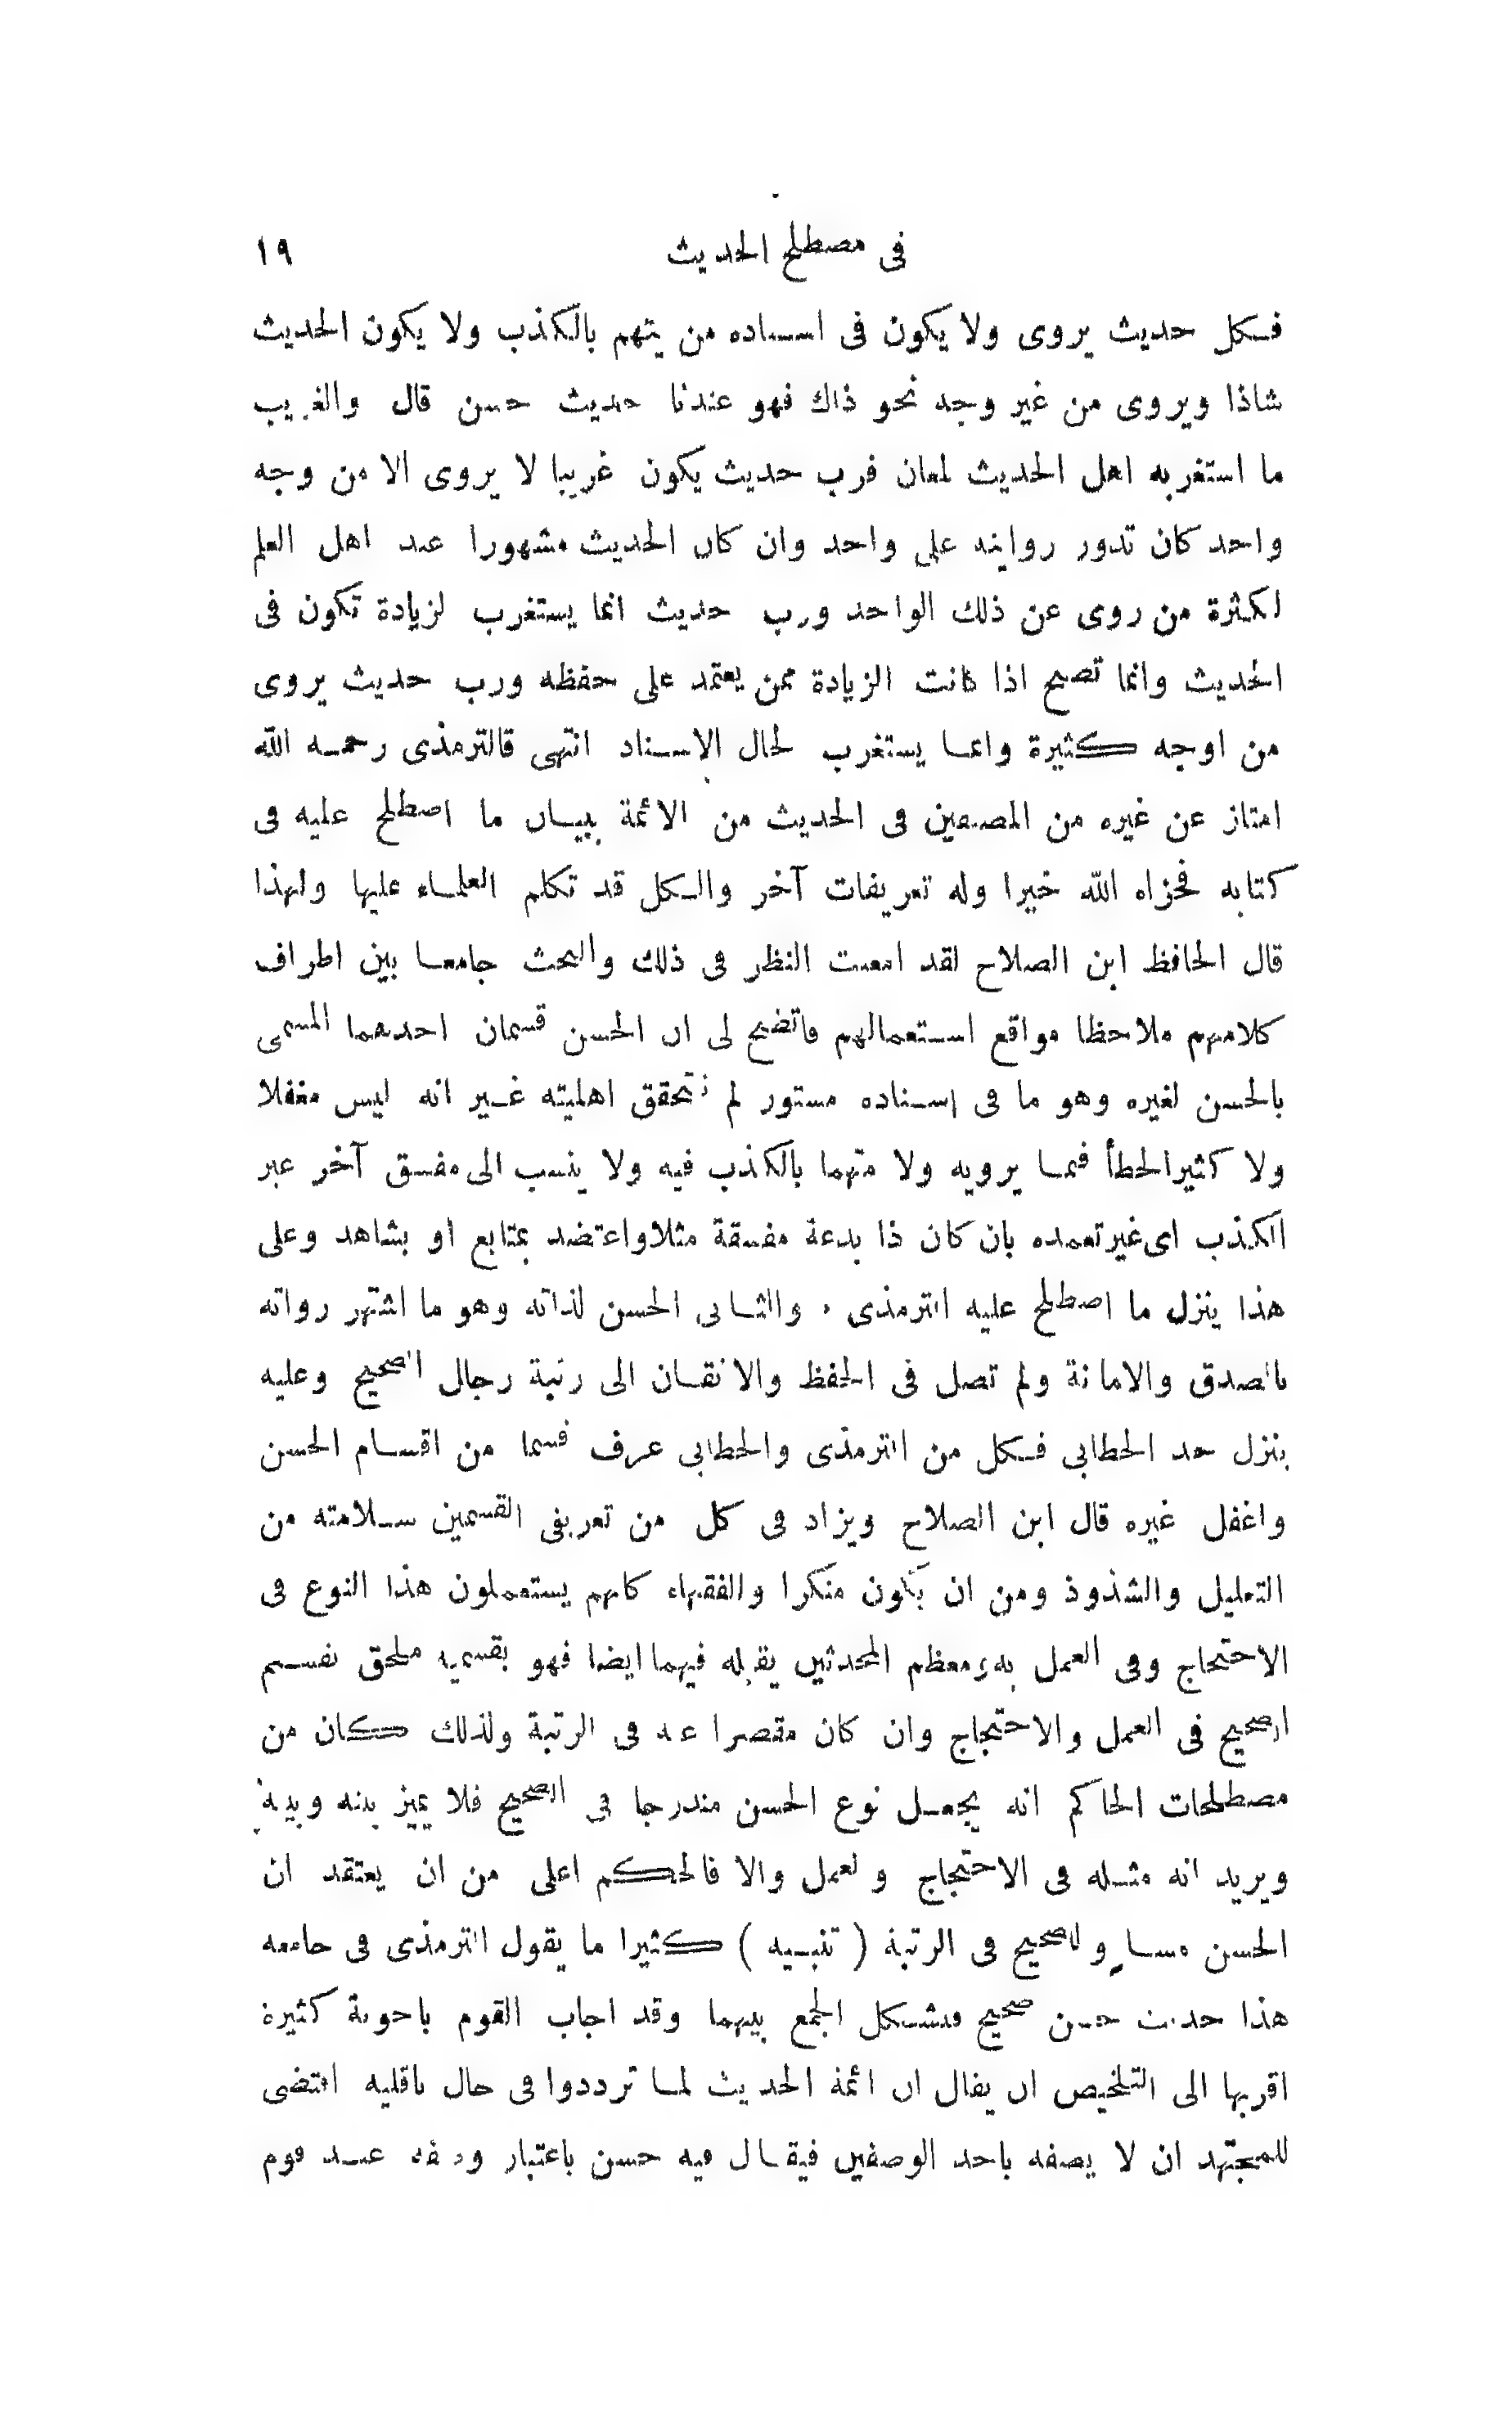 في مصطلح الحديث ١٩
فكل حديث يروى ولا يكون فى اسناده من يتهم بالكذب ولا يكون الحديث
شاذا ويروى من غير وجه نحو ذاك فهو عندنا حديث حسن قال والغريب
ما استغربه اهل الحديث لمعان فرب حديث يكون غريبا لا يروى الا من وجه
واحد كان تدور روايته على واحد وان كان الحديث مشهورا عند اهل العلم
لكثرة من روى عن ذلك الواحد ورب حديث انما يستغرب لزيادة تكون فى
الحديث وانما تصح اذا كانت الزيادة ممن يعتمد على حفظه ورب حديث يروى
من اوجه كثيرة وانما يستغرب لحال الاسناد انتهى قالترمذى رحمه الله
امتاز عن غيره من المصنفين فى الحديث من الائمة ببيان ما اصطلح عليه فى
كتابه فجزاه الله خيرا وله تعريفات آخر والكل قد تكلم العلماء عليها ولهذا
قال الحافظ ابن الصلاح لقد امعنت النظر فى ذلك والبحث جامعا بين اطراف
كلامهم ملاحظا مواقع استعمالهم فاتضح لى ان الحسن قسمان احدهما المسمى
بالحسن لغيره وهو ما فى اسناده مستور لم تتحقق اهليته غير انه ليس مغفلا
ولا كثير الخطأ فيما يرويه ولا متهما بالكذب فيه ولا ينسب الى مفسق آخر غير
الكذب اى غير تعمده بان كان ذا بدعة مفسقة مثلا واعتضد بمتابع او بشاهد وعلى
هذا ينزل ما اصطلح عليه الترمذى . والثانى الحسن لذاته وهو ما اشتهر رواته
بالصدق والامانة ولم تصل فى الحفظ والاتقان الى رتبة رجال الصحيح وعليه
ينزل حد الخطابى فكل من الترمذى والخطابى عرف قسما من اقسام الحسن
واغفل غيره قال ابن الصلاح ويزاد فى كل من تعريفى القسمين سلامته من
التعليل والشذوذ ومن ان يكون منكرا والفقهاء كلهم يستعملون هذا النوع فى
الاحتجاج وفى العمل به ومعظم المحدثين يقبله فيهما ايضا فهو بقسميه ملحق بقسم
الصحيح فى العمل والاحتجاج وان كان مقصرا عنه فى الرتبة ولذلك كان من
مصطلحات الحاكم انه يجعل نوع الحسن مندرجا فى الصحيح فلا يميز بينه وبينه
ويريد انه مثله فى الاحتجاج والعمل والا فالحكم اعلى من ان يعتقد ان
الحسن مساو للصحيح فى الرتبة ( تنبيه ) كثيرا ما يقول الترمذى فى جامعه
هذا حديث حسن صحيح فيشكل الجمع بينهما وقد اجاب القوم باجوبة كثيرة
اقربها الى التلخيص ان يقال ان ائمة الحديث لما ترددوا فى حال ناقليه اقتضى
للمجتهد ان لا يصفه باحد الوصفين فيقال فيه حسن باعتبار وصفه عند قوم